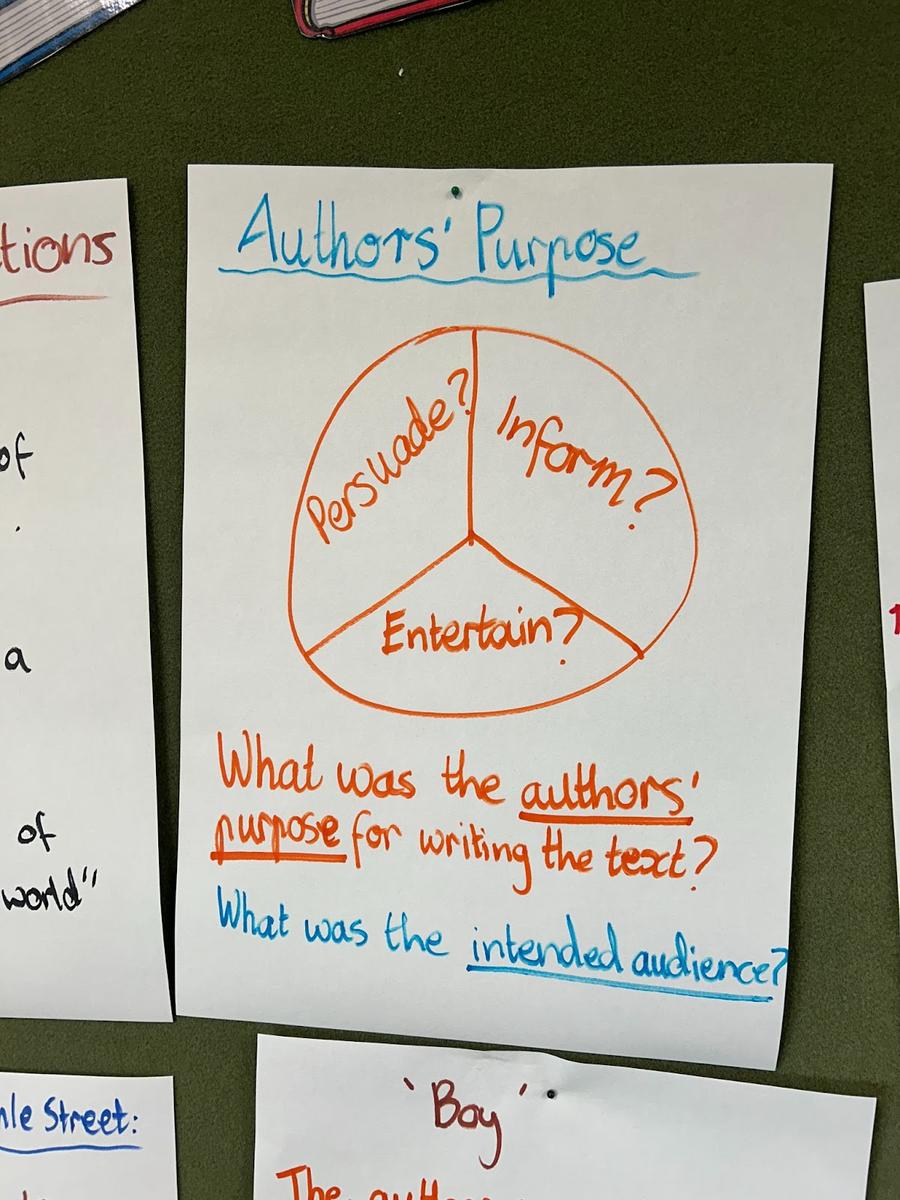 tions
of
a
of
world"
Authors' Purpose
Persuade?
Inform?
Entertain?
What was the authors'
purpose for writing the text?
What was the intended audience?
Street:
'Boy'
The